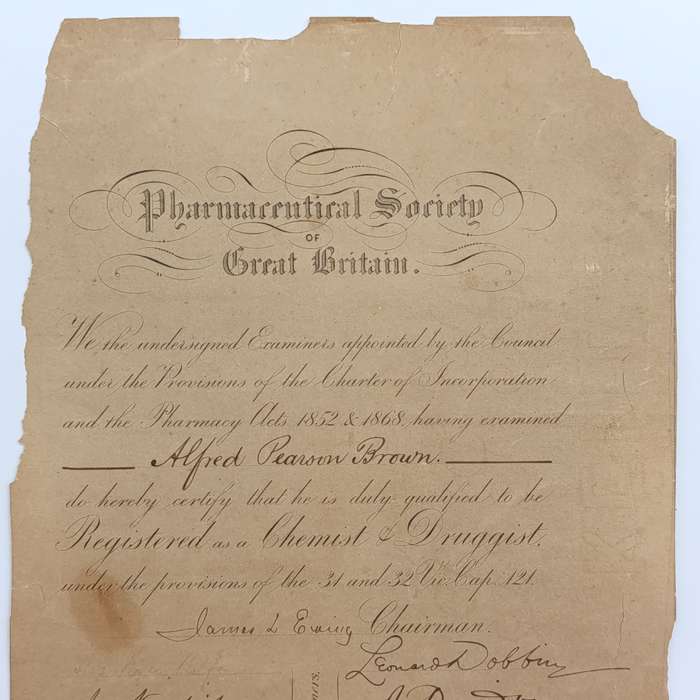 Pharmaceutical Society
OF
Great Britain.
We the undersigned Examiners appointed by the Council
under the Provisions of the Charter of Incorporation
and the Pharmacy Acts 1852 & 1868, having examined
Alfred Pearson Brown.
do hereby certify that he is duly qualified to be
Registered as a Chemist & Druggist,
under the provisions of the 31 and 32 Vic. Cap. 121.
James L Ewing Chairman.
Leonard Dobbin